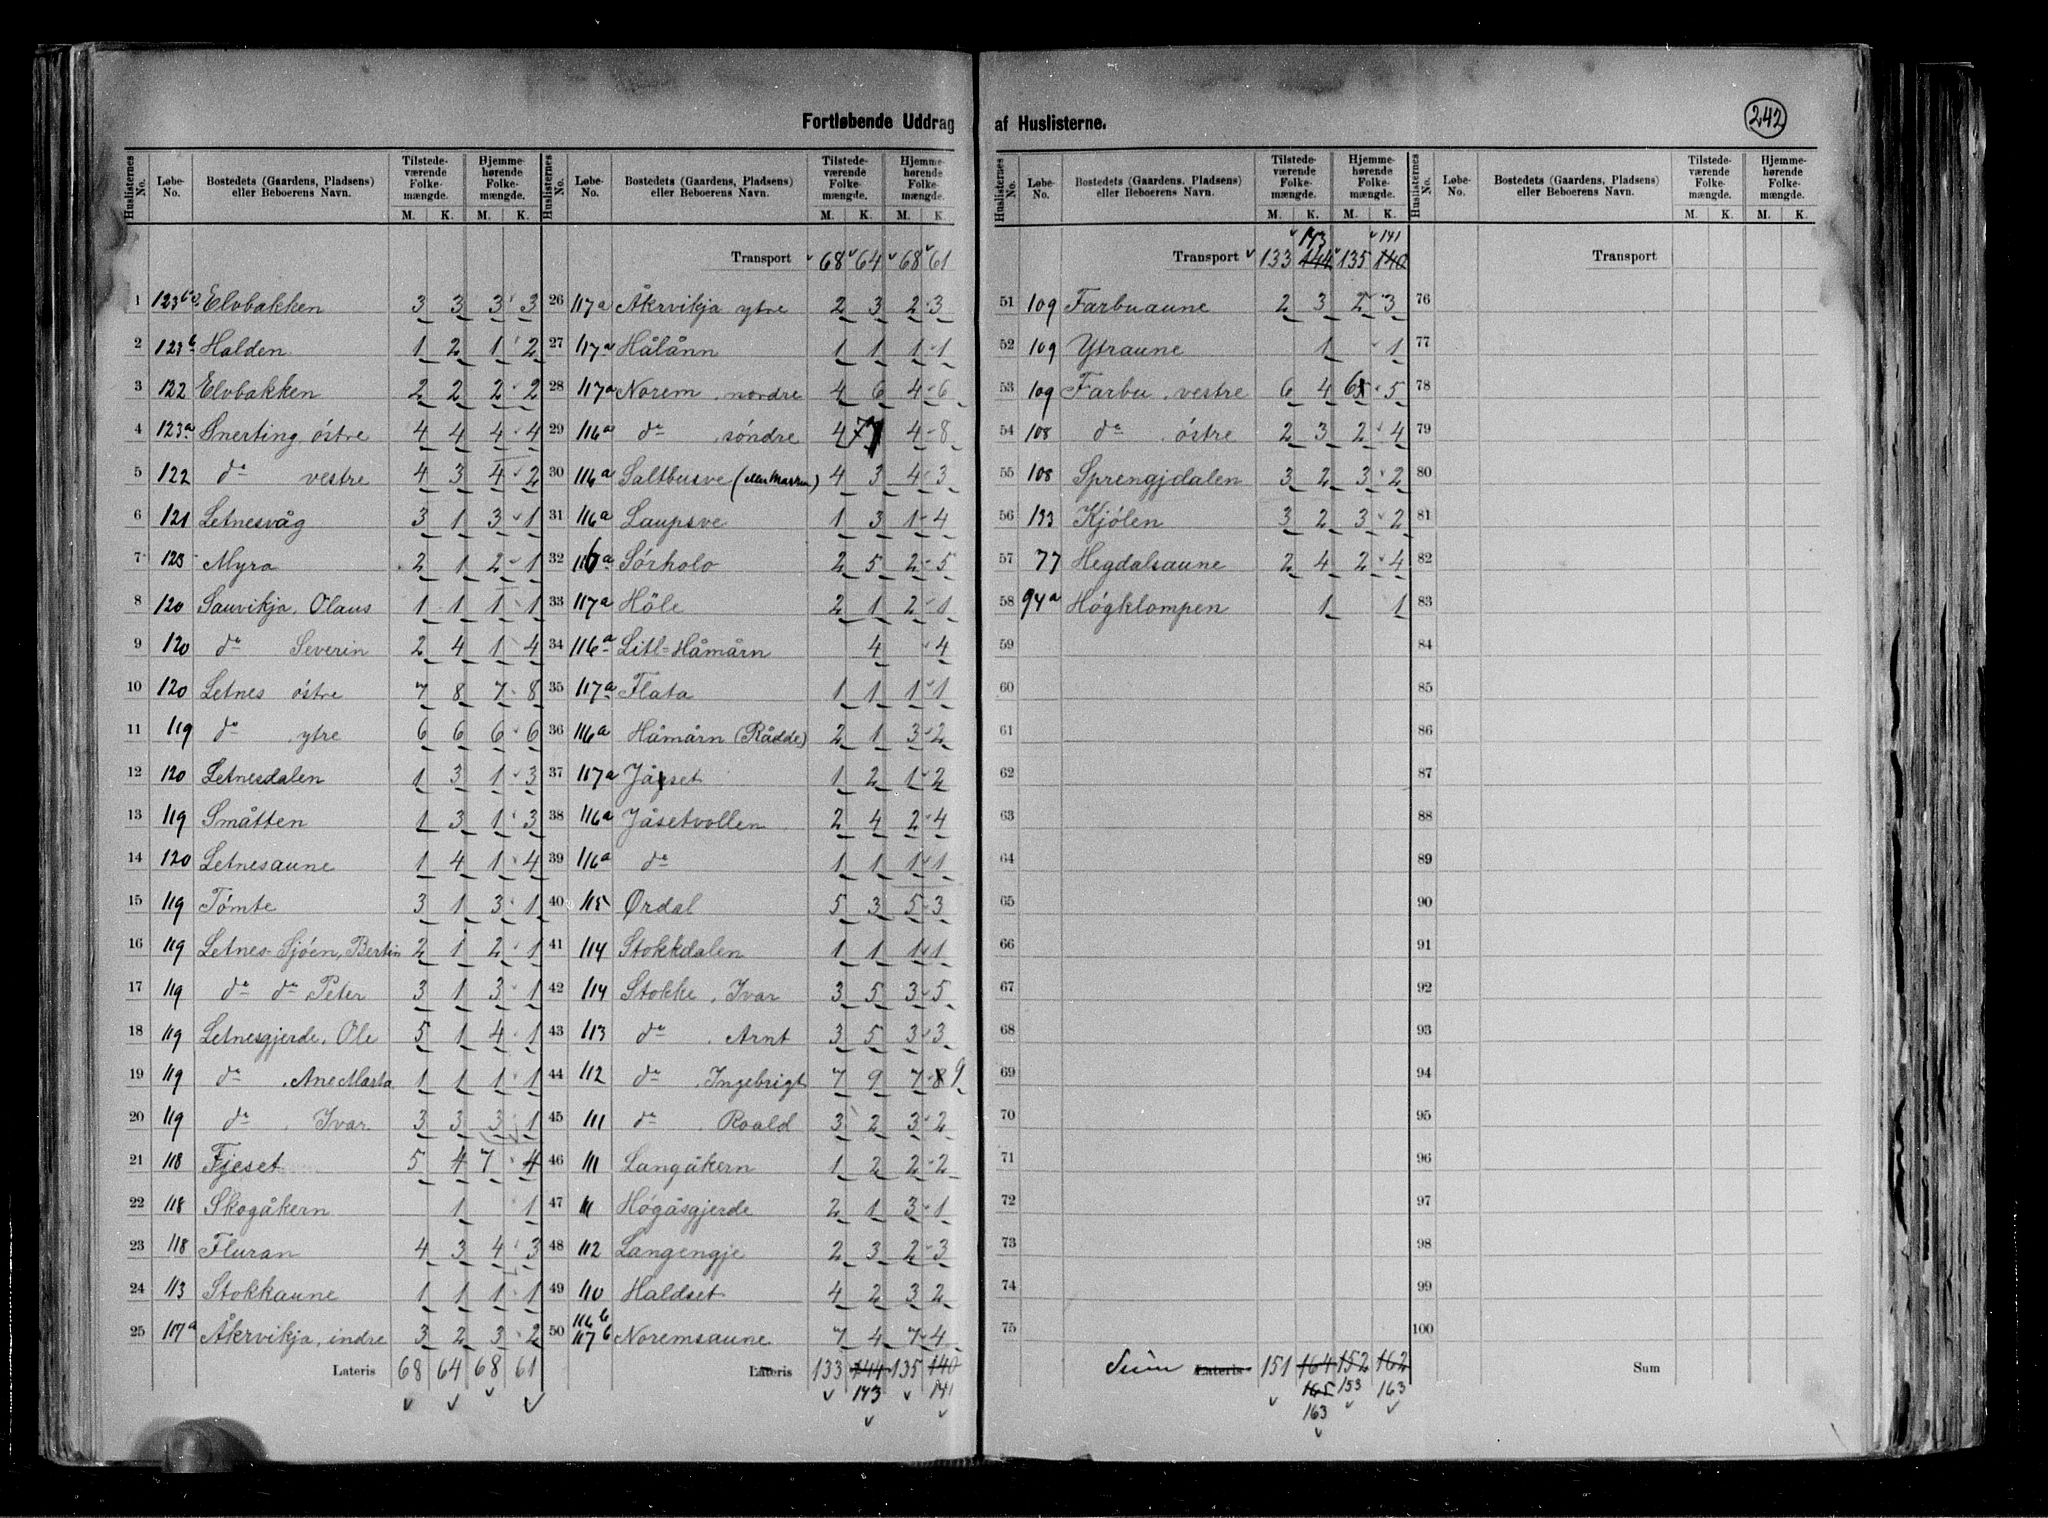 Fortløbende Uddrag af Huslisterne.
242
Huslisternes No. | Løbe-No. | Bostedets (Gaardens, Pladsens) eller Beboerens Navn. | Tilstedeværende Folkemængde. M. K. | Hjemmehørende Folkemængde. M. K.
1 Elvbakken 3 3 3 3
2 123b Halden 1 2 1 2
3 122 Elvbakken 2 2 2 2
4 123a Snerting, östre 4 4 4 4
5 122 do vestre 4 3 4 2
6 121 Letnesvåg 3 1 3 1
7 Myra 2 1 2 1
8 120 Sauvikja, Olaus 1 1 1 1
9 120 do Severin 2 4 1 4
10 120 Letnes östre 7 8 7 8
11 119 do ytre 6 6 6 6
12 120 Letnesdalen 1 3 1 3
13 119 Småtten 1 3 1 3
14 120 Letnesaune 1 4 1 4
15 119 Tömte 3 1 3 1
16 119 Letnes-Sjöen, Bertin 2 1 2 1
17 119 do do Peter 3 1 3 1
18 119 Letnesgjerde, Ole 5 1 4 1
19 119 do , Ane Marta 1 1 1 1
20 119 do , Ivar 3 3 3 1
21 118 Fjeset 5 4 7 4
22 118 Skogåkern 1 1
23 118 Fluran 4 3 4 3
24 113 Stokkaune 1 1 1 1
25 117a Åkrvikja, indre 3 2 3 2
Lateris 68 64 68 61
Huslisternes No. | Løbe-No. | Bostedets (Gaardens, Pladsens) eller Beboerens Navn. | Tilstedeværende Folkemængde. M. K. | Hjemmehørende Folkemængde. M. K.
Transport 68 64 68 61
26 117a Åkrvikja ytre 2 3 2 3
27 117a Hålånn 1 1 1 1
28 117a Norem, nordre 4 6 4 6
29 116a do , söndre 4 7 4 8
30 116a Saltbusve 4 3 4 3
31 116a Laupsve 1 3 1 4
32 116a Sörholo 2 5 2 5
33 117a Höle 2 1 2 1
34 116a Litl-Håmårn 4 4
35 117a Flata 1 1 1 1
36 116a Håmårn (Rådde) 2 1 3 2
37 117a Jåset 1 2 1 2
38 116a Jåsetvollen 2 4 2 4
39 116a do 1 1 1 1
40 115 Ørdal 5 3 5 3
41 114 Stokkdalen 1 1 1 1
42 114 Stokke, Ivar 3 5 3 5
43 113 do , Arnt 3 5 3 3
44 112 do , Ingebrigt 7 9 7 8 9
45 111 do , Roald 3 2 3 2
46 111 Langåkern 1 2 2 2
47 111 Högåsgjerde 2 1 3 1
48 112 Langengje 2 3 2 3
49 110 Haldset 4 2 3 2
50 116b 117b Noremsaune 7 4 7 4
Lateris 133 144 135 140
143 141
Huslisternes No. | Løbe-No. | Bostedets (Gaardens, Pladsens) eller Beboerens Navn. | Tilstedeværende Folkemængde. M. K. | Hjemmehørende Folkemængde. M. K.
143 141
Transport 133 144 135 140
51 109 Farbuaune 2 3 2 3
52 109 Ytraune 1 1
53 109 Farbu, vestre 6 4 6 5
54 108 do , östre 2 3 2 4
55 108 Sprengjdalen 3 2 3 2
56 133 Kjölen 3 2 3 2
57 77 Hegdalsaune 2 4 2 4
58 94a Högklompen 1 1
59
60
61
62
63
64
65
66
67
68
69
70
71
72
73
74
75
Sum Lateris 151 164 152 162
165 153 163
163
Huslisternes No. | Løbe-No. | Bostedets (Gaardens, Pladsens) eller Beboerens Navn. | Tilstedeværende Folkemængde. M. K. | Hjemmehørende Folkemængde. M. K.
Transport
76
77
78
79
80
81
82
83
84
85
86
87
88
89
90
91
92
93
94
95
96
97
98
99
100
Sum